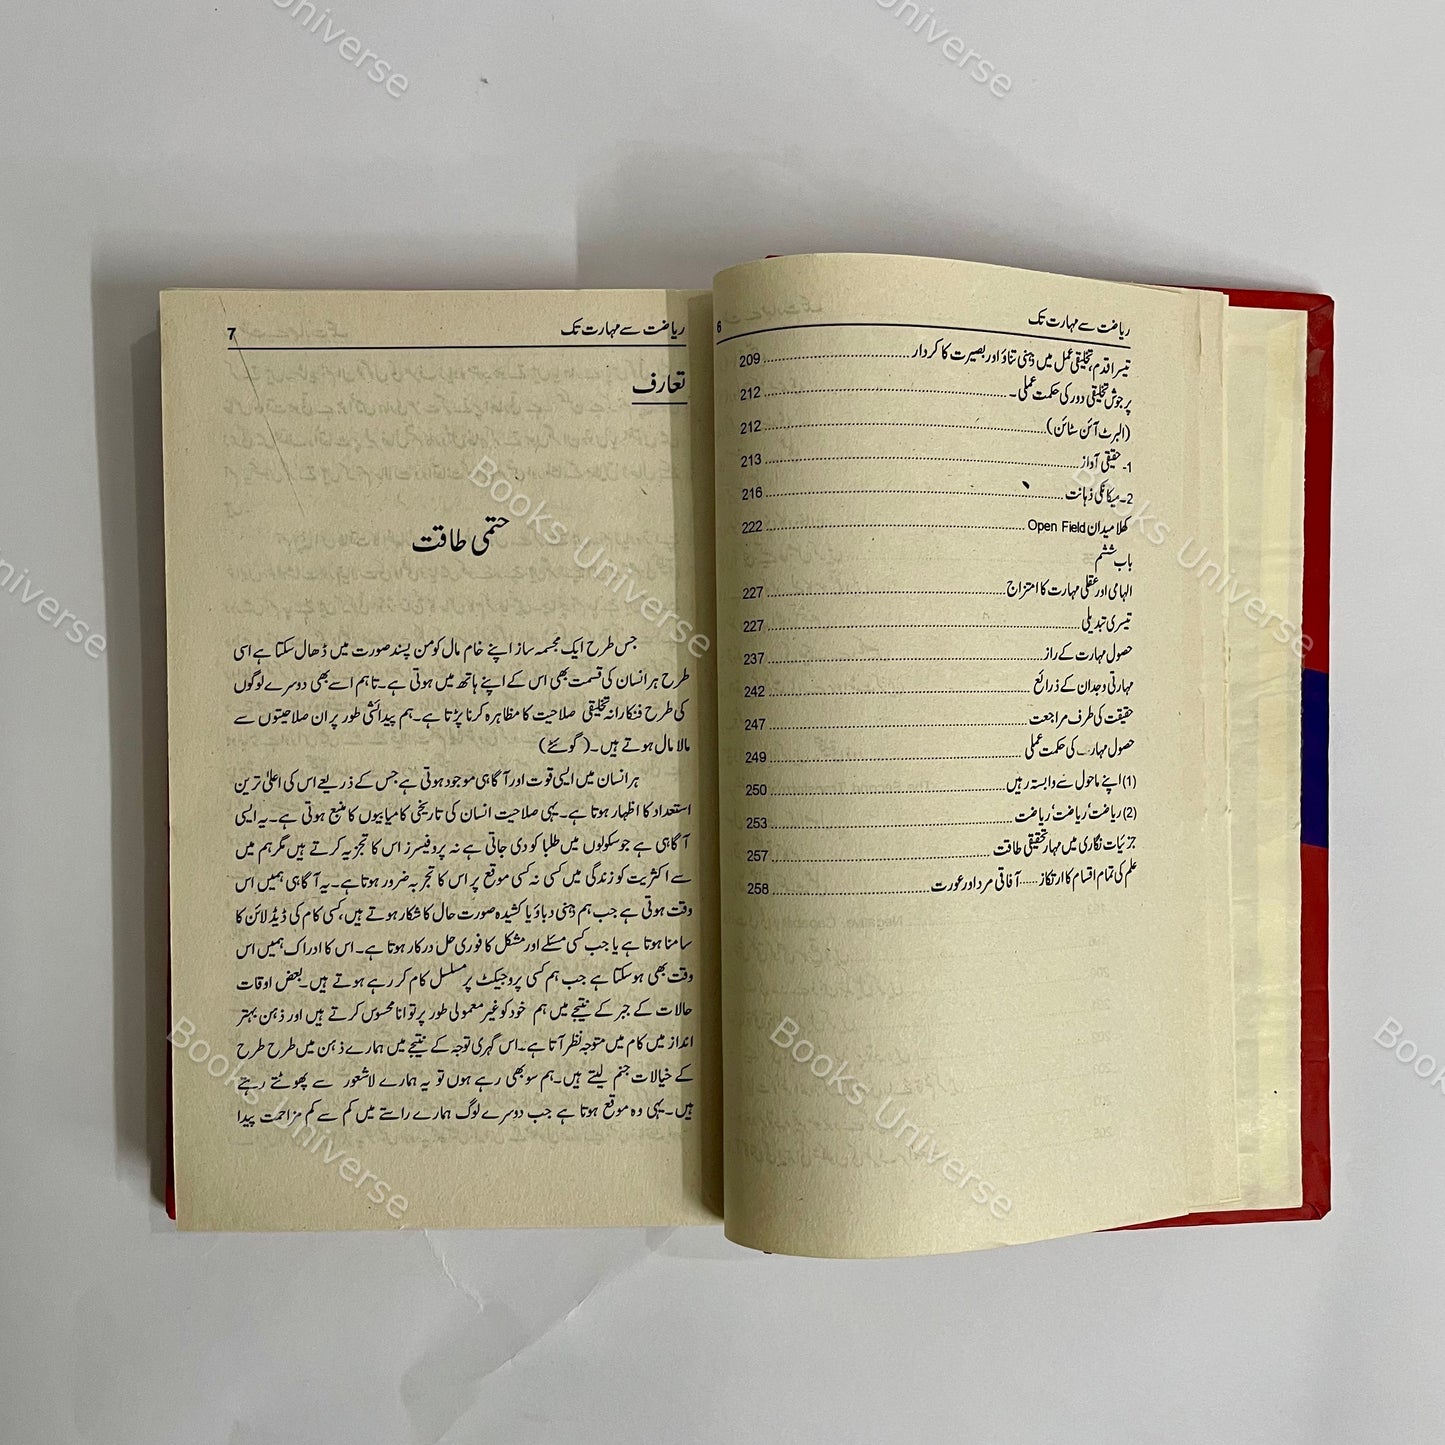 ریاضت سے مہارت تک
6
تیسرا قدم، تخلیقی عمل میں ذہنی تناؤ اور بصیرت کا کردار 209
پرجوش تخلیقی دور کی حکمت عملی۔ 212
(البرٹ آئن سٹائن) 212
1۔ حقیقی آواز 213
2۔ میکانکی ذہانت 216
کھلا میدان Open Field 222
باب ششم
الہامی اور عقلی مہارت کا امتزاج 227
تیسری تبدیلی 227
حصول مہارت کے راز 237
مہارتی وجدان کے ذرائع 242
حقیقت کی طرف مراجعت 247
حصول مہارت کی حکمت عملی 249
(1) اپنے ماحول سے وابستہ رہیں 250
(2) ریاضت‘ ریاضت‘ ریاضت 253
جزئیات نگاری میں مہار تحقیقی طاقت 257
علم کی تمام اقسام کا ارتکاز ...... آفاقی مرد اور عورت 258
ریاضت سے مہارت تک
7
تعارف
حتمی طاقت
جس طرح ایک مجسمہ ساز اپنے خام مال کو من پسند صورت میں ڈھال سکتا ہے اسی
طرح ہر انسان کی قسمت بھی اس کے اپنے ہاتھ میں ہوتی ہے۔ تاہم اسے بھی دوسرے لوگوں
کی طرح فنکارانہ تخلیقی صلاحیت کا مظاہرہ کرنا پڑتا ہے۔ ہم پیدائشی طور پر ان صلاحیتوں سے
مالا مال ہوتے ہیں۔ (گوئٹے)
ہر انسان میں ایسی قوت اور آگاہی موجود ہوتی ہے جس کے ذریعے اس کی اعلیٰ ترین
استعداد کا اظہار ہوتا ہے۔ یہی صلاحیت انسان کی تاریخی کامیابیوں کا منبع ہوتی ہے۔ یہ ایسی
آگاہی ہے جو سکولوں میں طلبا کو دی جاتی ہے نہ پروفیسرز اس کا تجزیہ کرتے ہیں مگر ہم میں
سے اکثریت کو زندگی میں کسی نہ کسی موقع پر اس کا تجربہ ضرور ہوتا ہے۔ یہ آگاہی ہمیں اس
وقت ہوتی ہے جب ہم ذہنی دباؤ یا کشیدہ صورت حال کا شکار ہوتے ہیں، کسی کام کی ڈیڈ لائن کا
سامنا ہوتا ہے یا جب کسی مسئلے اور مشکل کا فوری حل درکار ہوتا ہے۔ اس کا ادراک ہمیں اس
وقت بھی ہو سکتا ہے جب ہم کسی پروجیکٹ پر مسلسل کام کر رہے ہوتے ہیں۔ بعض اوقات
حالات کے جبر کے نتیجے میں ہم خود کو غیر معمولی طور پر توانا محسوس کرتے ہیں اور ذہن بہتر
انداز میں کام میں متوجہ نظر آتا ہے۔ اس گہری توجہ کے نتیجے میں ہمارے ذہن میں طرح طرح
کے خیالات جنم لیتے ہیں۔ ہم سو بھی رہے ہوں تو یہ ہمارے لاشعور سے پھوٹتے رہتے
ہیں۔ یہی وہ موقع ہوتا ہے جب دوسرے لوگ ہمارے راستے میں کم سے کم مزاحمت پیدا
Books Universe
Books Universe
Books Universe
Books Universe